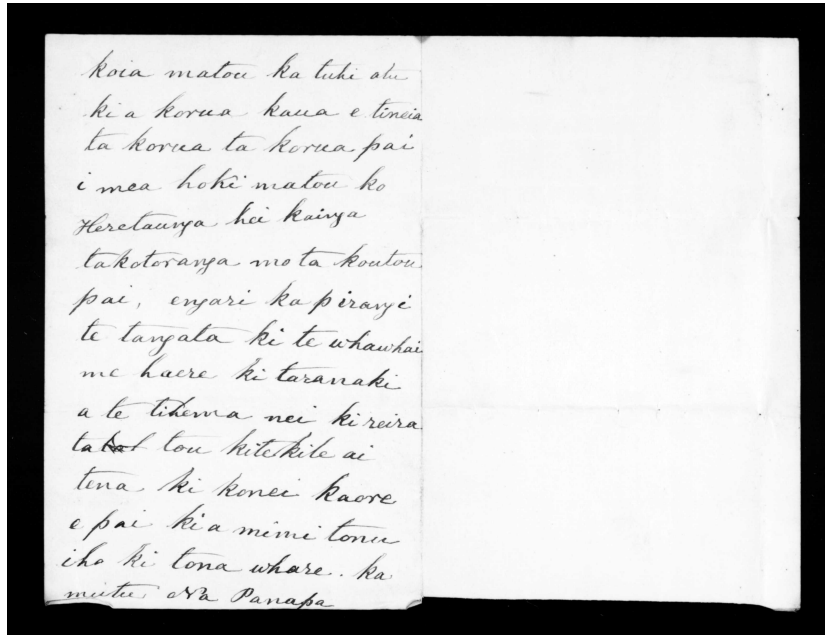 koia matou ka tuhi atu
ki a korua kaua e tineia
ta korua ta korua pai
i mea hoki matou ko
Heretaunga hei kainga
takotoranga mo ta koutou
pai, engari ka pirangi
te tangata ki te whawhai
me haere ki taranaki
a te tihema nei ki reira
ta tou kitekite ai
tena ki konei kaore
e pai kia mimi tonu
iho ki tona whare. ka
mutu Na Panapa